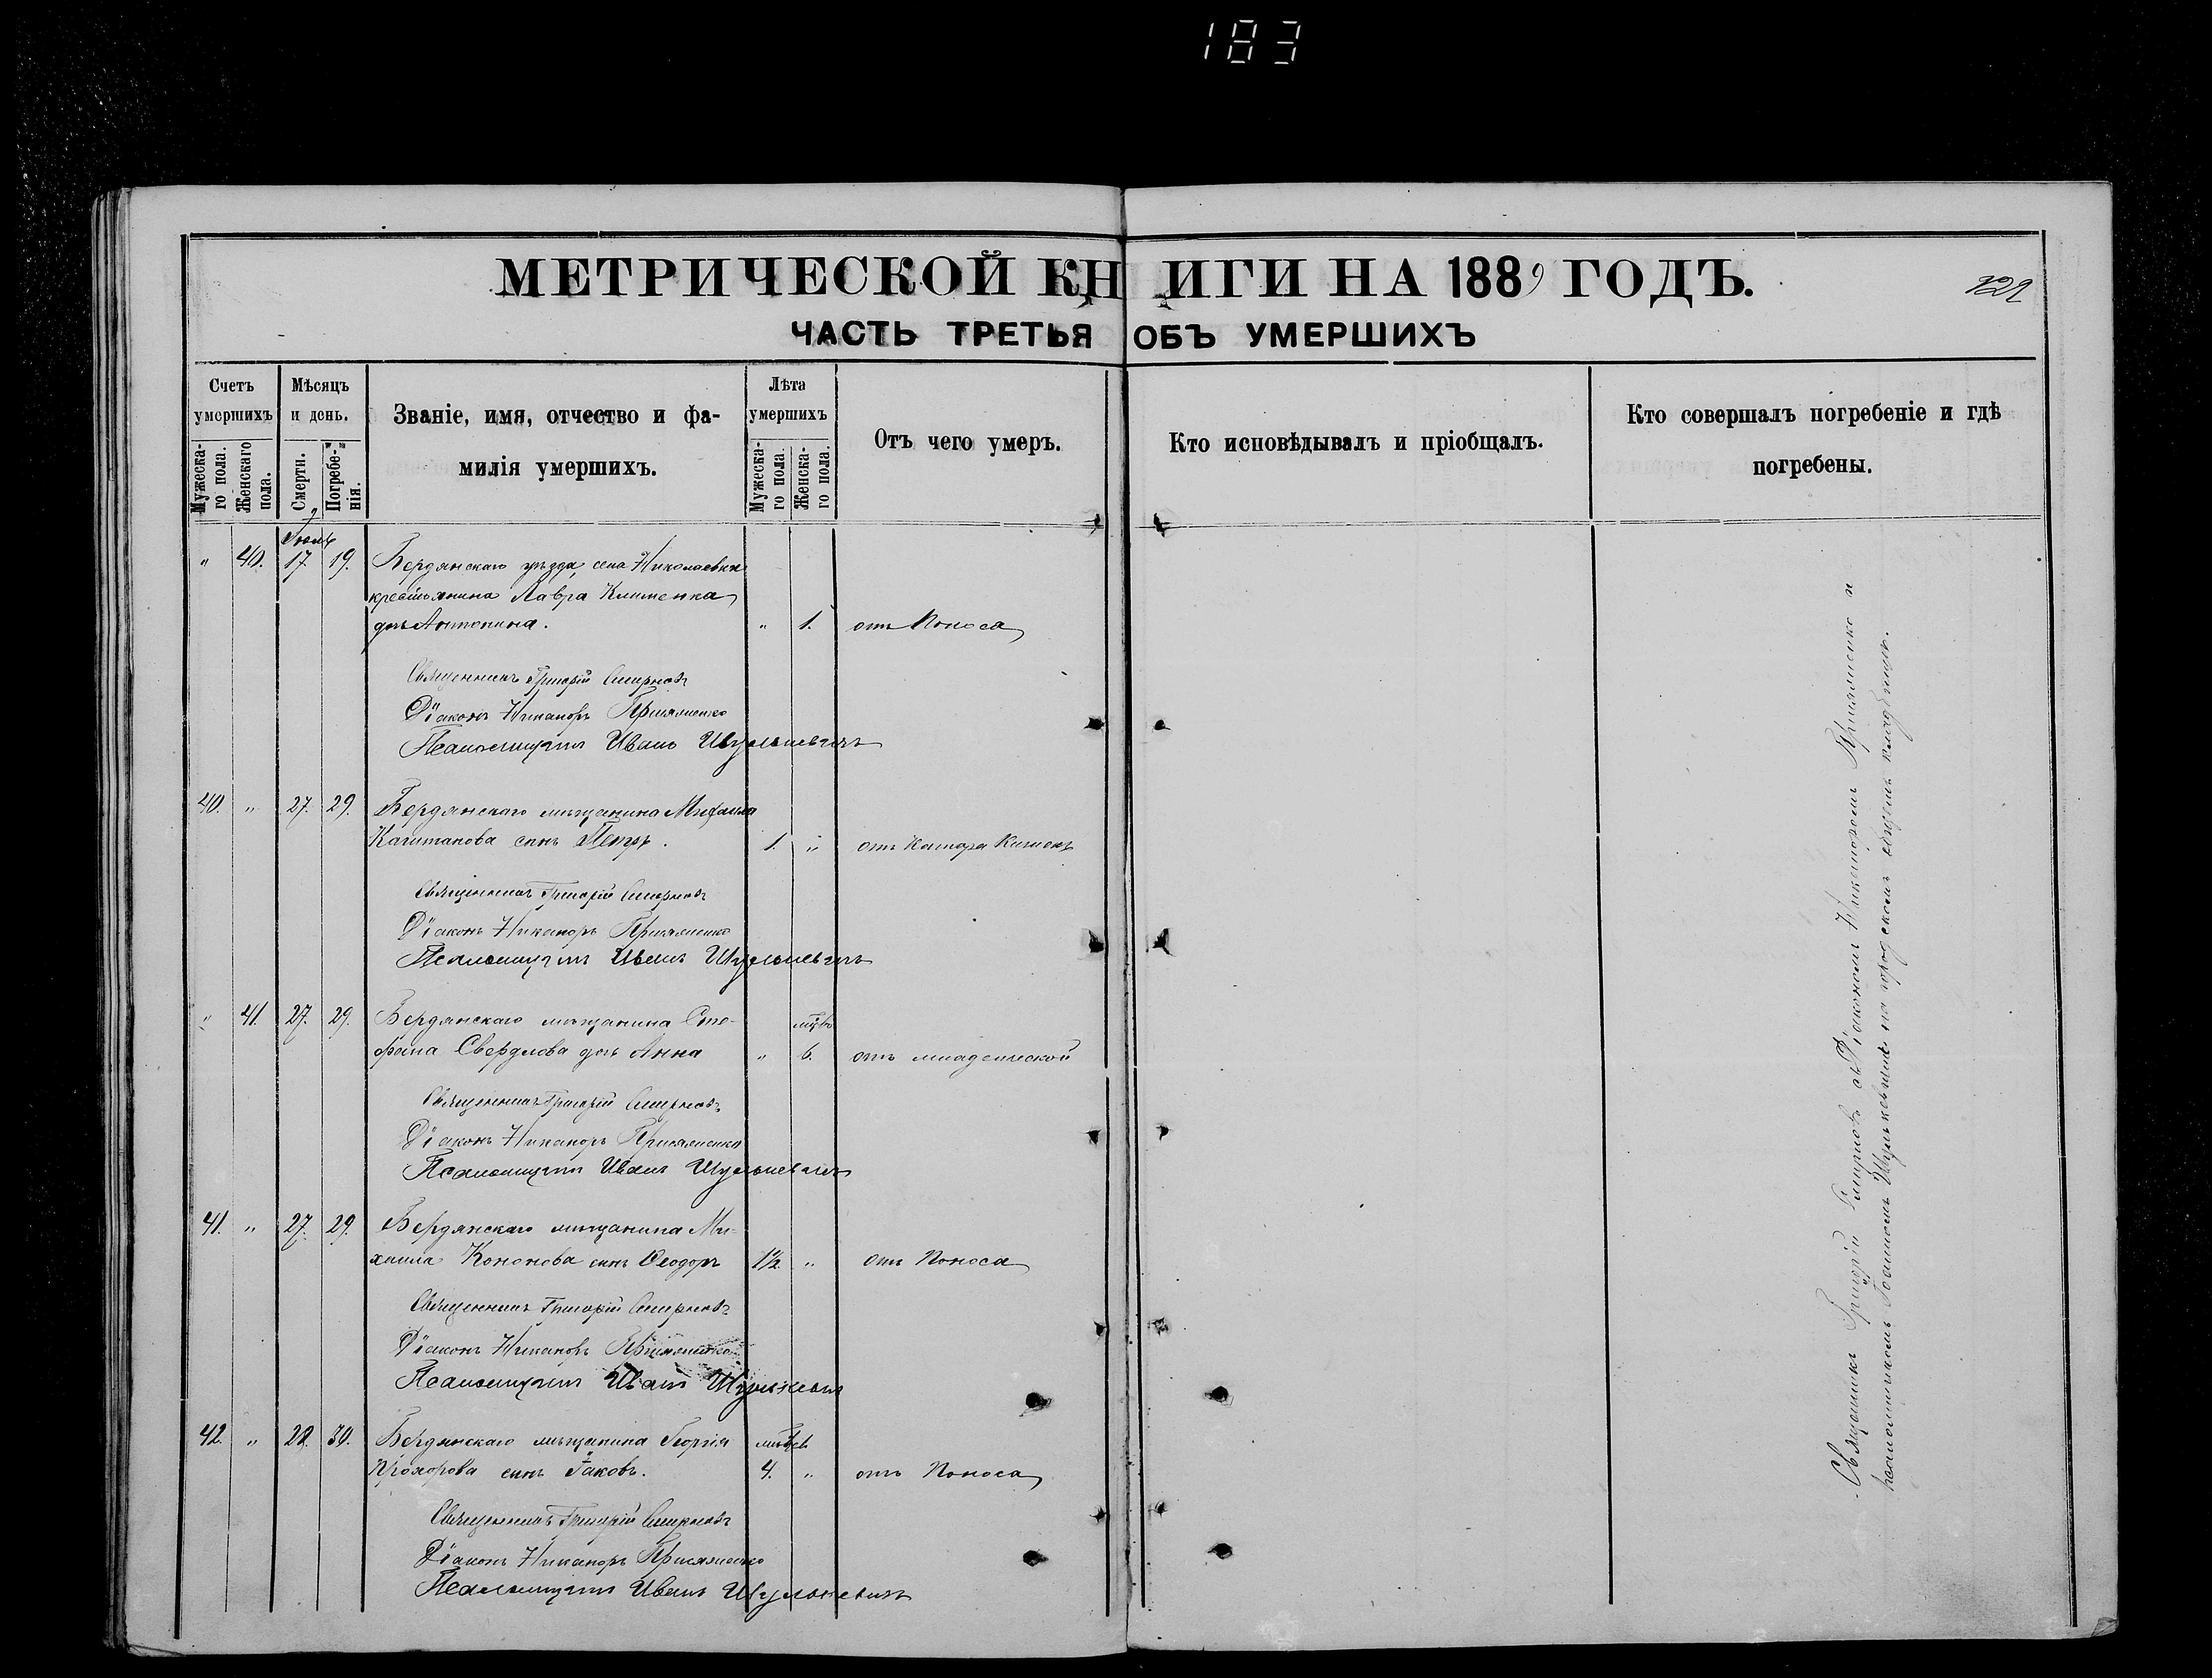 183
МЕТРИЧЕСКОЙ КНИГИ НА 1889 ГОДЪ.
ЧАСТЬ ТРЕТЬЯ ОБЪ УМЕРШИХЪ
Счетъ умершихъ
Мужеска-го пола.
Женскаго пола.
Мѣсяцъ и день.
Смерти.
Погребе-нія.
Званіе, имя, отчество и фа-
милія умершихъ.
Лѣта умершихъ
Мужеска-го пола.
Женска-го пола.
Отъ чего умеръ.
Кто исповѣдывалъ и пріобщалъ.
Кто совершалъ погребеніе и гдѣ
погребены.
" 40. 17. 19. Бердянскаго уѣзда, села Николаевки
крестьянина Лавра Клименка
дочь Антонина. " 1. отъ Поноса
Священникъ Григорій Смирновъ
Діаконъ Никаноръ
Псаломщикъ Иванъ Шулькевичъ
40. " 27. 29. Бердянскаго мѣщанина Михаила
сынъ Петръ. 1. " отъ Катара Кишекъ
Священникъ Григорій Смирновъ
Діаконъ Никаноръ
Псаломщикъ Иванъ Шулькевичъ
" 41. 27. 29. Бердянскаго мѣщанина Сте-
фана Свердлова дочь Анна " 6. отъ младенческой
Священникъ Григорій Смирновъ
Діаконъ Никаноръ
Псаломщикъ Иванъ Шулькевичъ
41. " 27. 29. Бердянскаго мѣщанина Ми-
хаила Кононова сынъ Ѳеодоръ 1½ " отъ Поноса
Священникъ Григорій Смирновъ
Діаконъ Никаноръ
Псаломщикъ Иванъ Шулькевичъ
42. " 28. 30. Бердянскаго мѣщанина Георгія
Прохорова сынъ Іаковъ. 4. " отъ Поноса
Священникъ Григорій Смирновъ
Діаконъ Никаноръ
Псаломщикъ Иванъ Шулькевичъ
Священникъ Григорій Смирновъ съ Діакономъ Никаноромъ и
псаломщикомъ Іоанномъ Шулькевичемъ на городскомъ общемъ кладбищѣ.